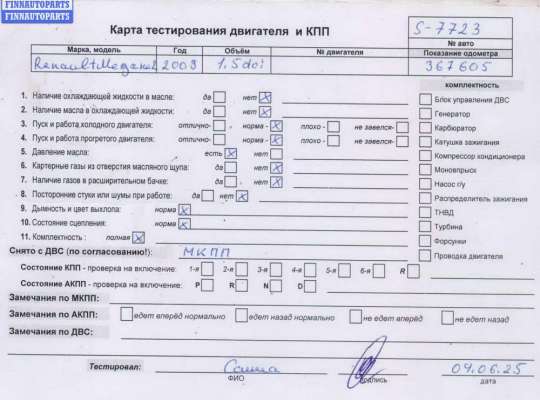 FINNAUTOPARTS
FINNAUTOPARTS
Карта тестирования двигателя и КПП
S-7723
№ авто
Марка, модель Год Объём № двигателя Показание одометра
Renault Megane 2003 1,5dci 367605
комплектность
1. Наличие охлаждающей жидкости в масле: да нет X
Блок управления ДВС
2. Наличие масла в охлаждающей жидкости: да нет X
Генератор
3. Пуск и работа холодного двигателя: отлично- норма - X плохо - не завелся-
Карбюратор
4. Пуск и работа прогретого двигателя: отлично- норма - X плохо - не завелся-
Катушка зажигания
5. Давление масла: есть X нет
Компрессор кондиционера
6. Картерные газы из отверстия масляного щупа: да нет X
Моновпрыск
7. Наличие газов в расширительном бачке: да нет X
Насос г/у
8. Посторонние стуки или шумы при работе: да нет X
Распределитель зажигания
9. Дымность и цвет выхлопа: норма X
ТНВД
10. Состояние сцепления: норма X
Турбина
11. Комплектность : полная X
Форсунки
Снято с ДВС (по согласованию!): МКПП
Проводка двигателя
Состояние КПП - проверка на включение: 1-я 2-я 3-я 4-я 5-я 6-я R
Состояние АКПП - проверка на включение: P R N D
Замечания по МКПП:
Замечания по АКПП: едет вперёд нормально едет назад нормально не едет вперёд не едет назад
Замечания по ДВС:
Тестировал: Саша 09.06.25
ФИО подпись дата